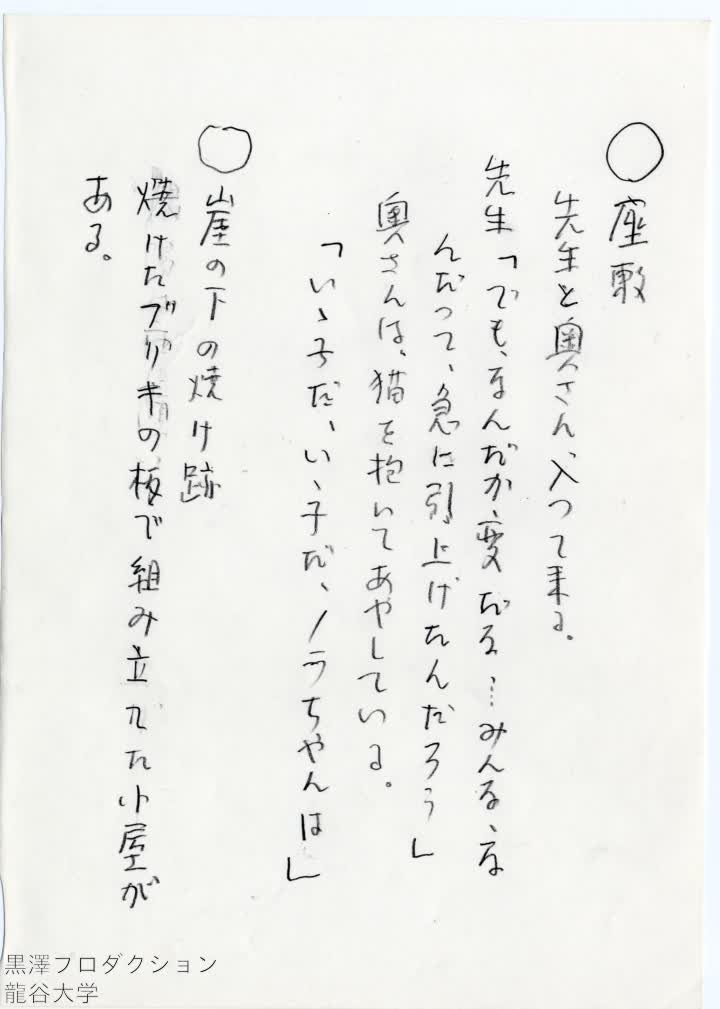 ○座敷
先生と奥さん、入って来る。
先生「でも、なんだか、変だな…みんな、な
んだって、急に引上げたんだろう」
奥さんは、猫を抱いてあやしている。
「いゝ子だ、いゝ子だ、ノラちゃんは」
○崖の下の焼け跡
焼けたブリキの板で組み立てた小屋が
ある。
黒澤プロダクション
龍谷大学